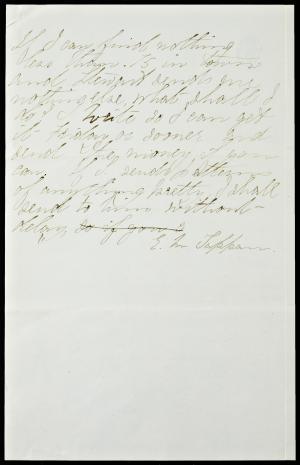 If I can find nothing
less than .75 in town
and Stewart sends me
nothing else, what shall I
do? Write so I can get
it Friday or sooner and
send the money, if you
can. If S. sends patterns
of anything pretty, I shall
send to him without
delay, so if you
E. M. Tappan.